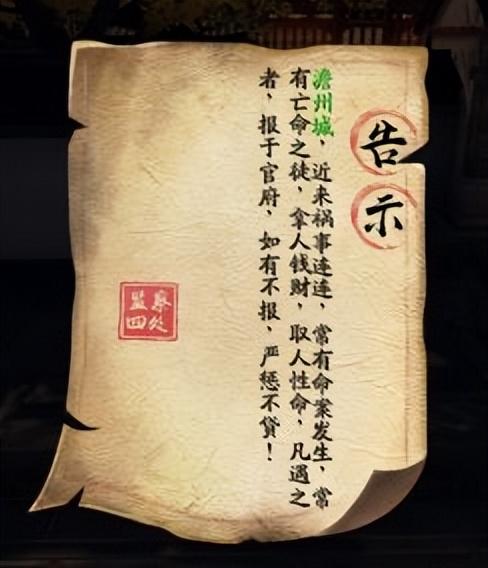 告示
澹州城，近来祸事连连，常有命案发生，常
有亡命之徒，拿人钱财，取人性命，凡遇之
者，报于官府，如有不报，严惩不贷！
监察
四处